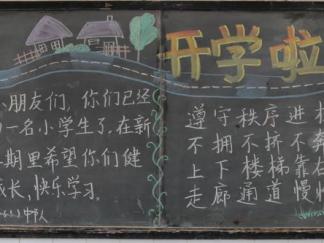 开学啦
小朋友们，你们已经
一名小学生了。在新
期里希望你们健
成长，快乐学习。
遵守秩序进校
不拥不挤不奔
上下楼梯靠右
走廊通道慢